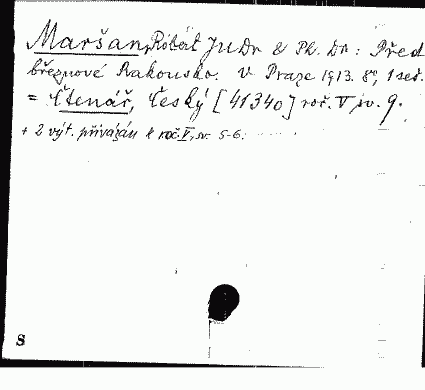 Maršan, Róbert JUDr & Ph. Dr: Před
březnové Rakousko. V Praze 1913. 8°, 1 seš.
= Čtenář, Český [41340] roč. V sv. 9.
+ 2 výt. přivázán k roč. V, sv. 5-6.
S